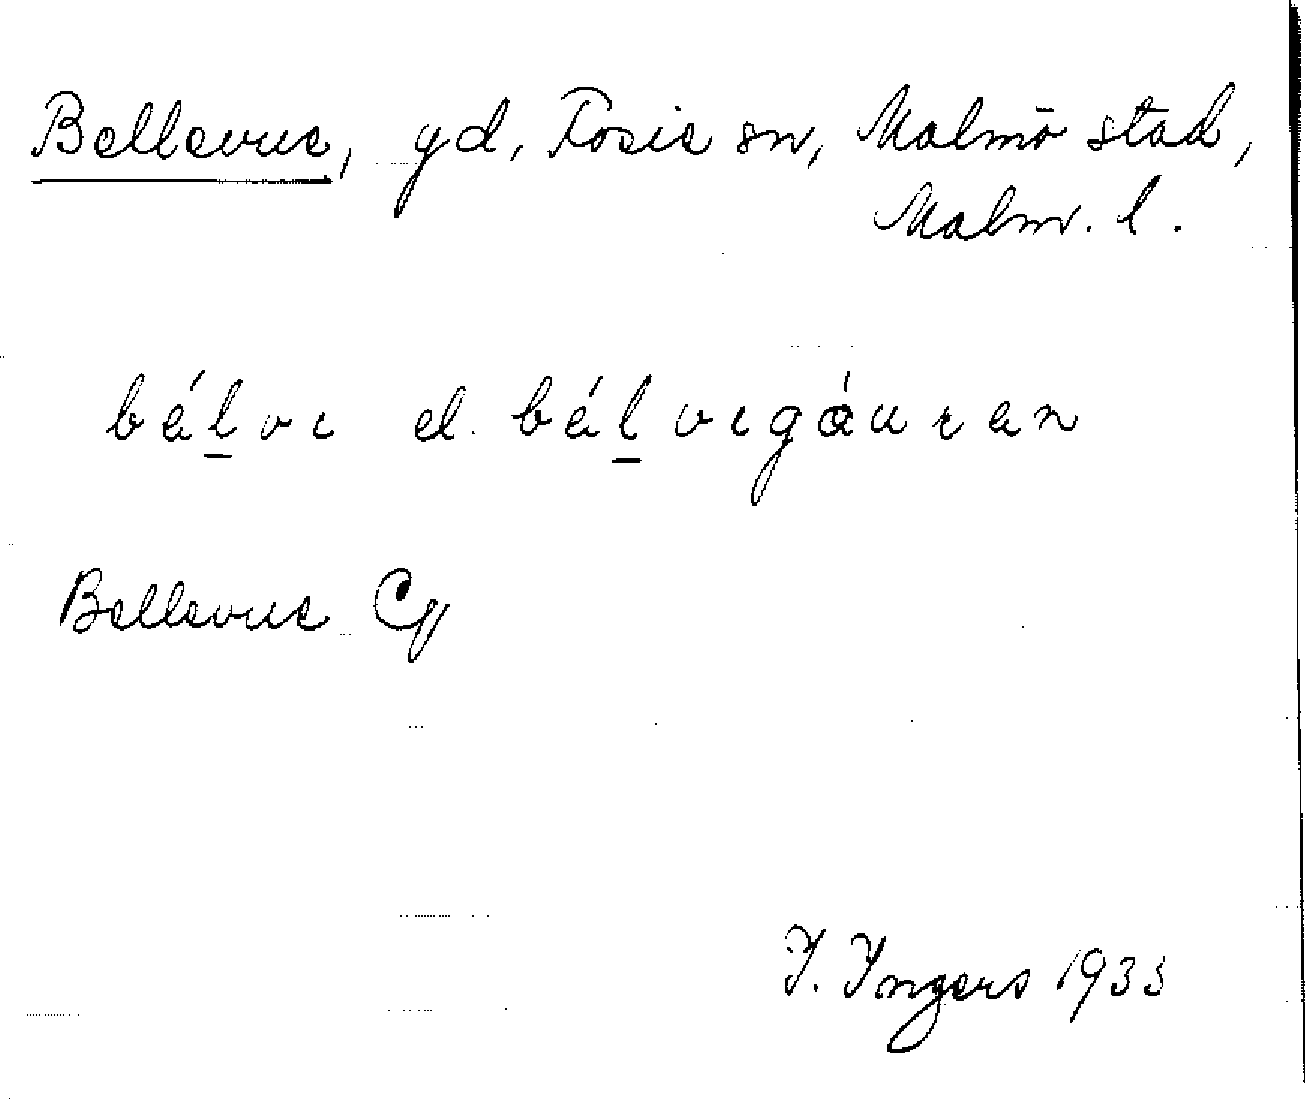 Bellevue, gd, Fosie sn, Malmö stad,
Malm. l.
bél̲vı el. bél̲vıgáuran
Bellevue Cg
I. Ingers 1933